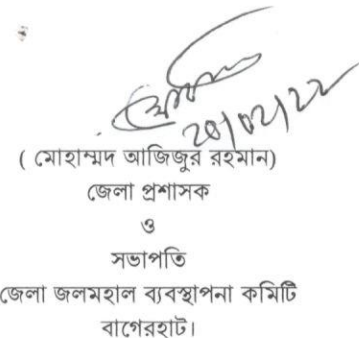 ( মোহাম্মদ আজিজুর রহমান)
জেলা প্রশাসক
ও
সভাপতি
জেলা জলমহাল ব্যবস্থাপনা কমিটি
বাগেরহাট।